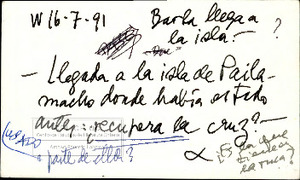 W 16-7-91 Barba llega a
la isla- ?
- Llegada a la isla de Paila-
macho donde había estado
antes ¿recupera la cruz?-
o parte de ella?